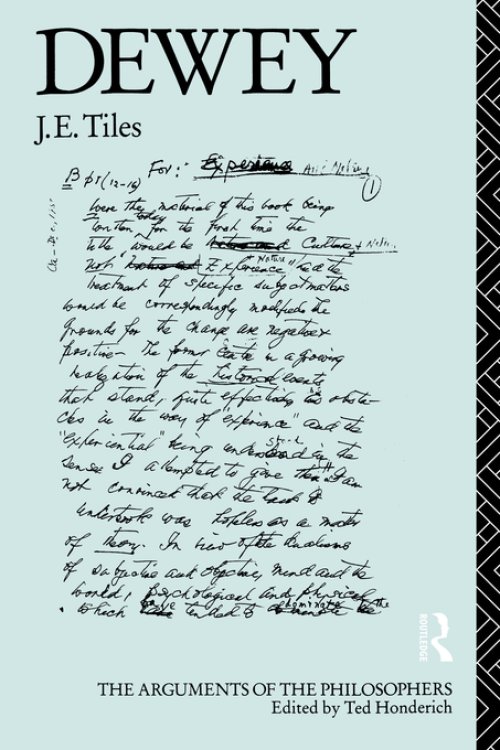 DEWEY
J.E. Tiles
For: Experience And Nature
B pt (12-16)
1
Were the material of this book being
written today for the first time the
title would be Culture + Nature
not Experience
treatment of specific subject matters
would be correspondingly modified the
grounds for the change are negative &
positive - The former centre in a growing
realization of the historical events
that stand, quite effectively as obsta-
cles in the way of "experience" and the
"experiential" being understood in the
sense I attempted to give them I am
not convinced that the task I
undertook was hopeless as a matter
of theory. In view of the dualisms
of subjective and objective, mind and the
world, psychological and physical
which tended to the
ROUTLEDGE
THE ARGUMENTS OF THE PHILOSOPHERS
Edited by Ted Honderich